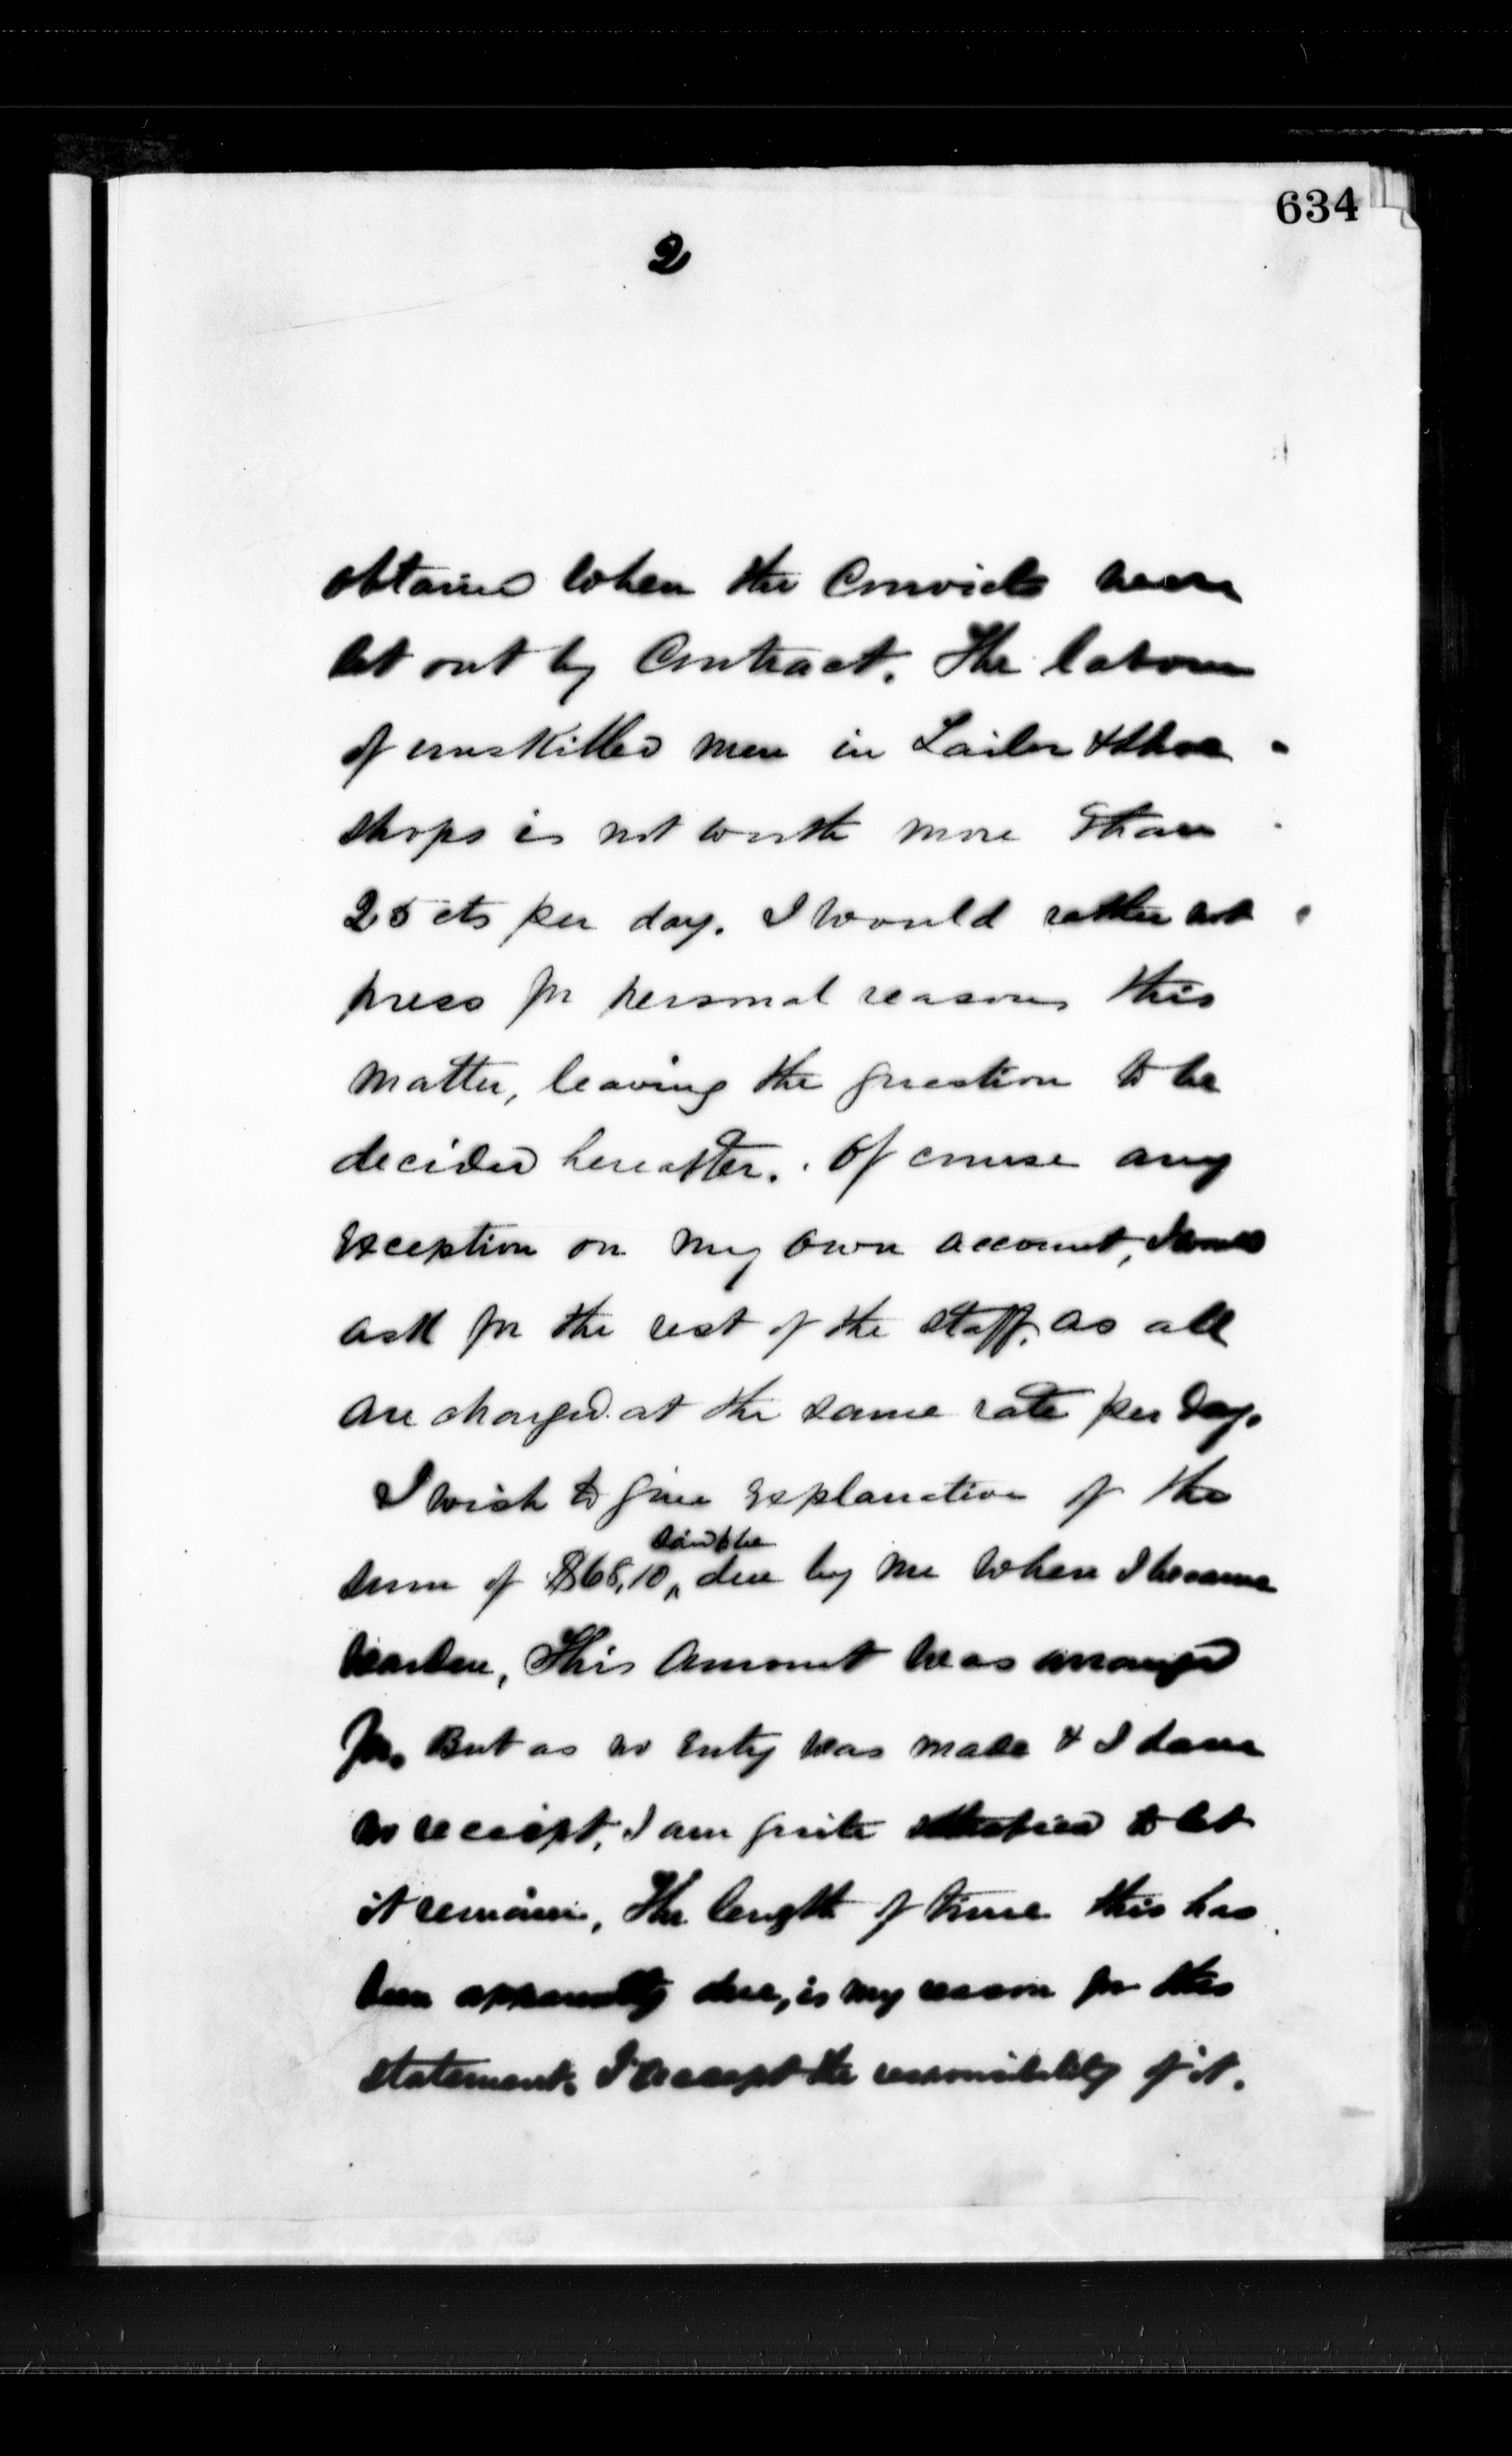 634
2
obtained when the Convicts were
let out by Contract. The labour
of unskilled men in Tailor & Shoe
shops is not worth more than
25 cts per day. I would rather not
press for personal reasons this
matter, leaving the question to be
decided hereafter. Of course any
Exception on my own account, I would
ask for the rest of the staff, as all
are charged at the same rate per day.
I wish to give Explanation of the
said to be
sum of $68,10 due by me when I became
Warden, This Amount was arranged
for. But as no Entry was made & I have
no receipt, I am quite satisfied to let
it remain, The length of time this has
been apparently due, is my reason for this
statement. I accept the responsibility of it.